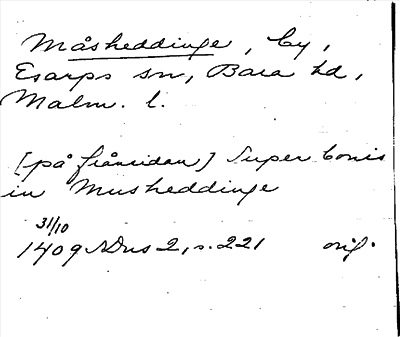 Måsheddinge, by,
Esarps sn, Bara hd,
Malm. l.
[på frånsidan] Super bonis
in Musheddinge
31/10
1409 NDns 2, s. 221 orig.